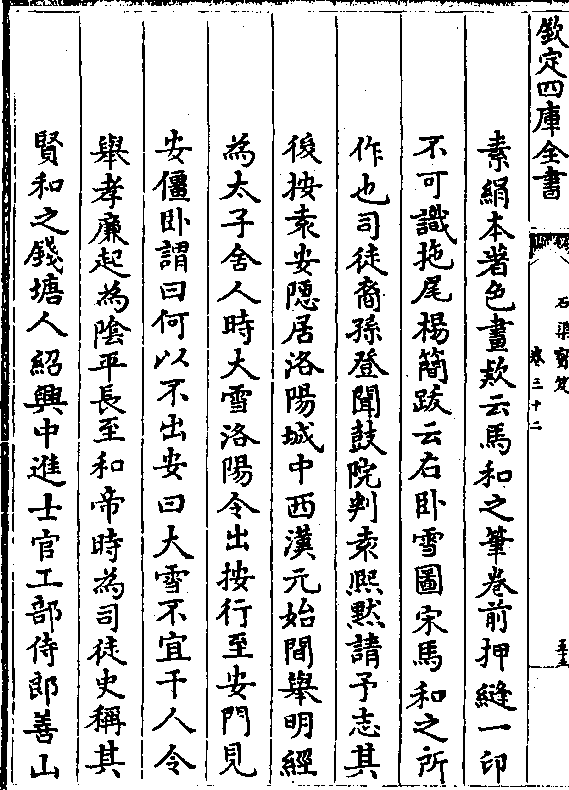 欽定四庫全書
石渠寳笈
卷三十二
素絹本著色畫欵云馬和之筆卷前押縫一印
不可識拖尾楊簡跋云右卧雪圖宋馬和之所
作也司徒裔孫登聞鼓院判袁熈黙請予志其
後按袁安隠居洛陽城中西漢元始間舉明經
為太子舍人時大雪洛陽令出按行至安門見
安僵卧謂曰何以不出安曰大雪不宜干人令
舉孝廉起為陰平長至和帝時為司徒史稱其
賢和之錢塘人紹興中進士官工部侍郎善山